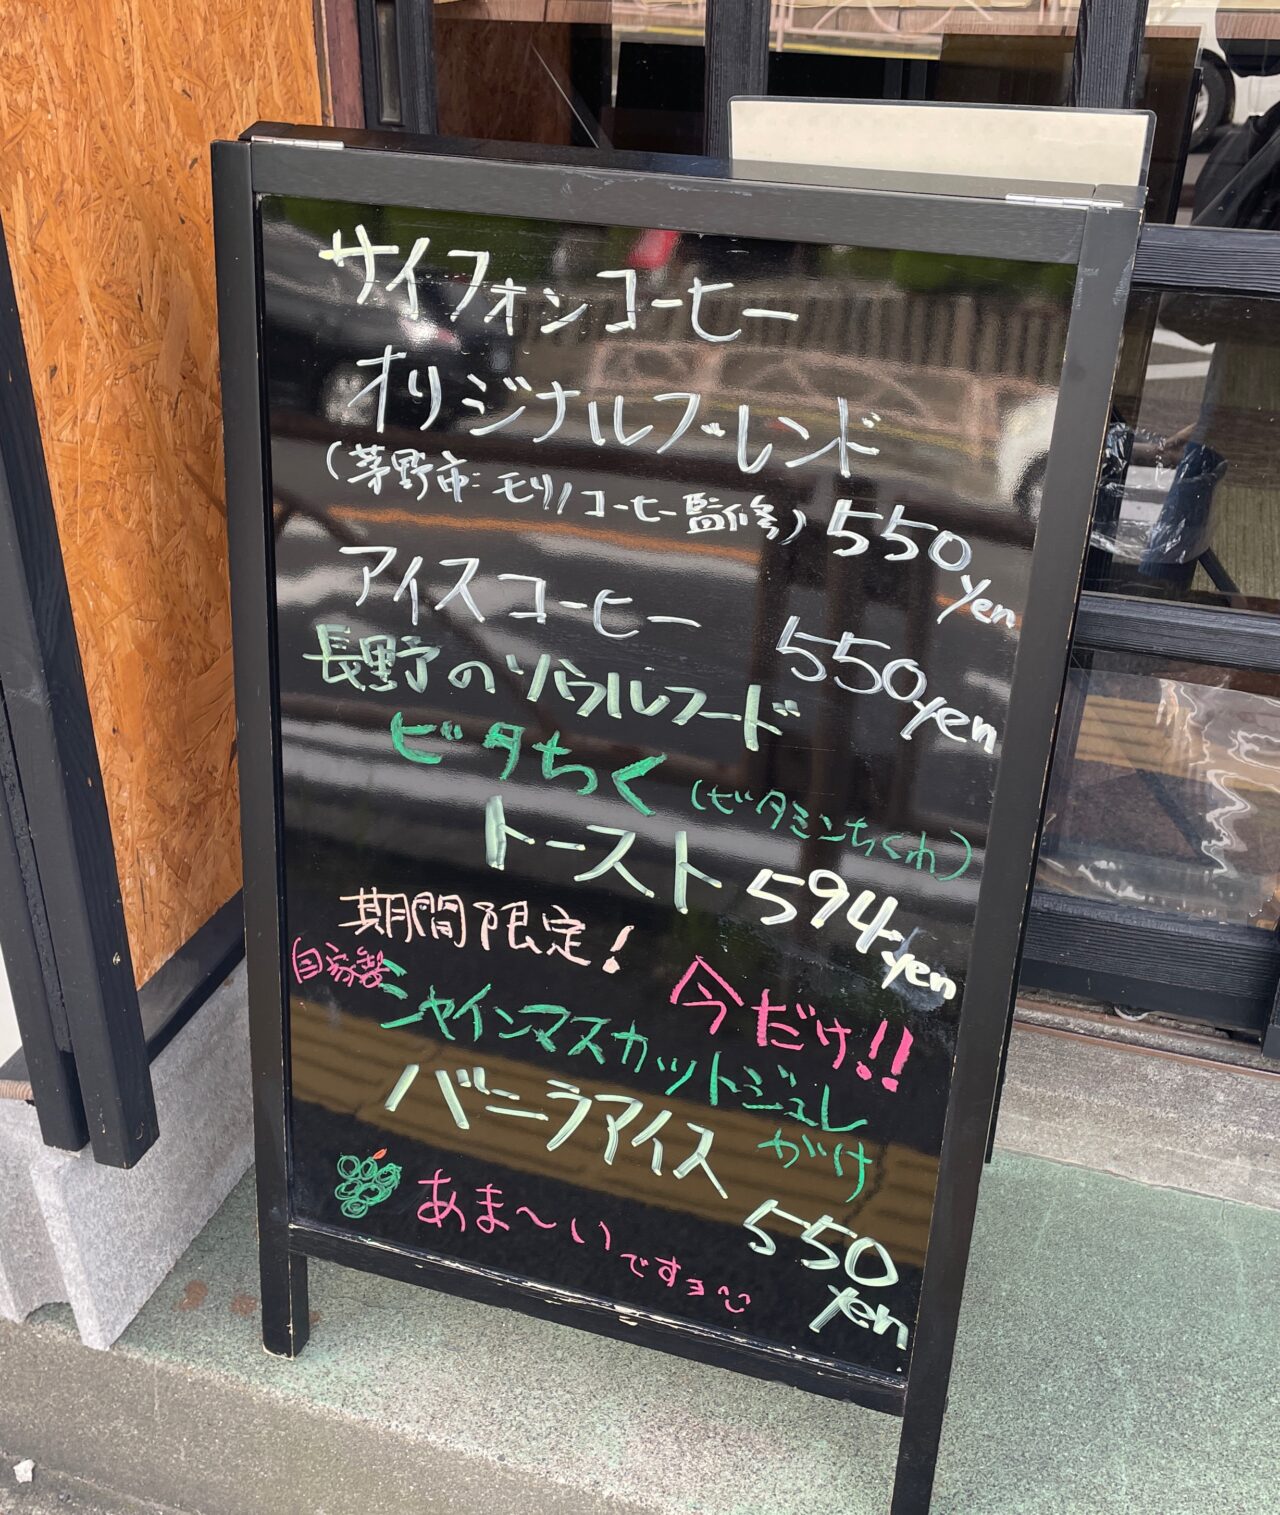 サイフォンコーヒー
オリジナルブレンド
(茅野市:モリノコーヒー監修) 550yen
アイスコーヒー 550yen
長野のソウルフード
ビタちく(ビタミンちくわ)
トースト 594yen
期間限定! 今だけ!!
自家製シャインマスカットジュレがけ
バニラアイス
あま〜いですョ 550yen